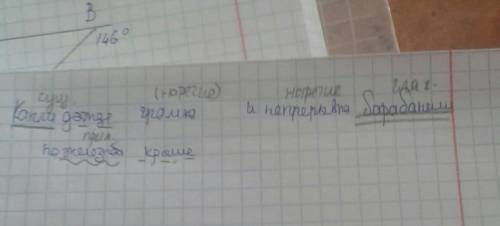 B
146°
сущ. (наречие) наречие глаг.
Капли дождя громко и непрерывно барабанили
прил.
по железной крыше